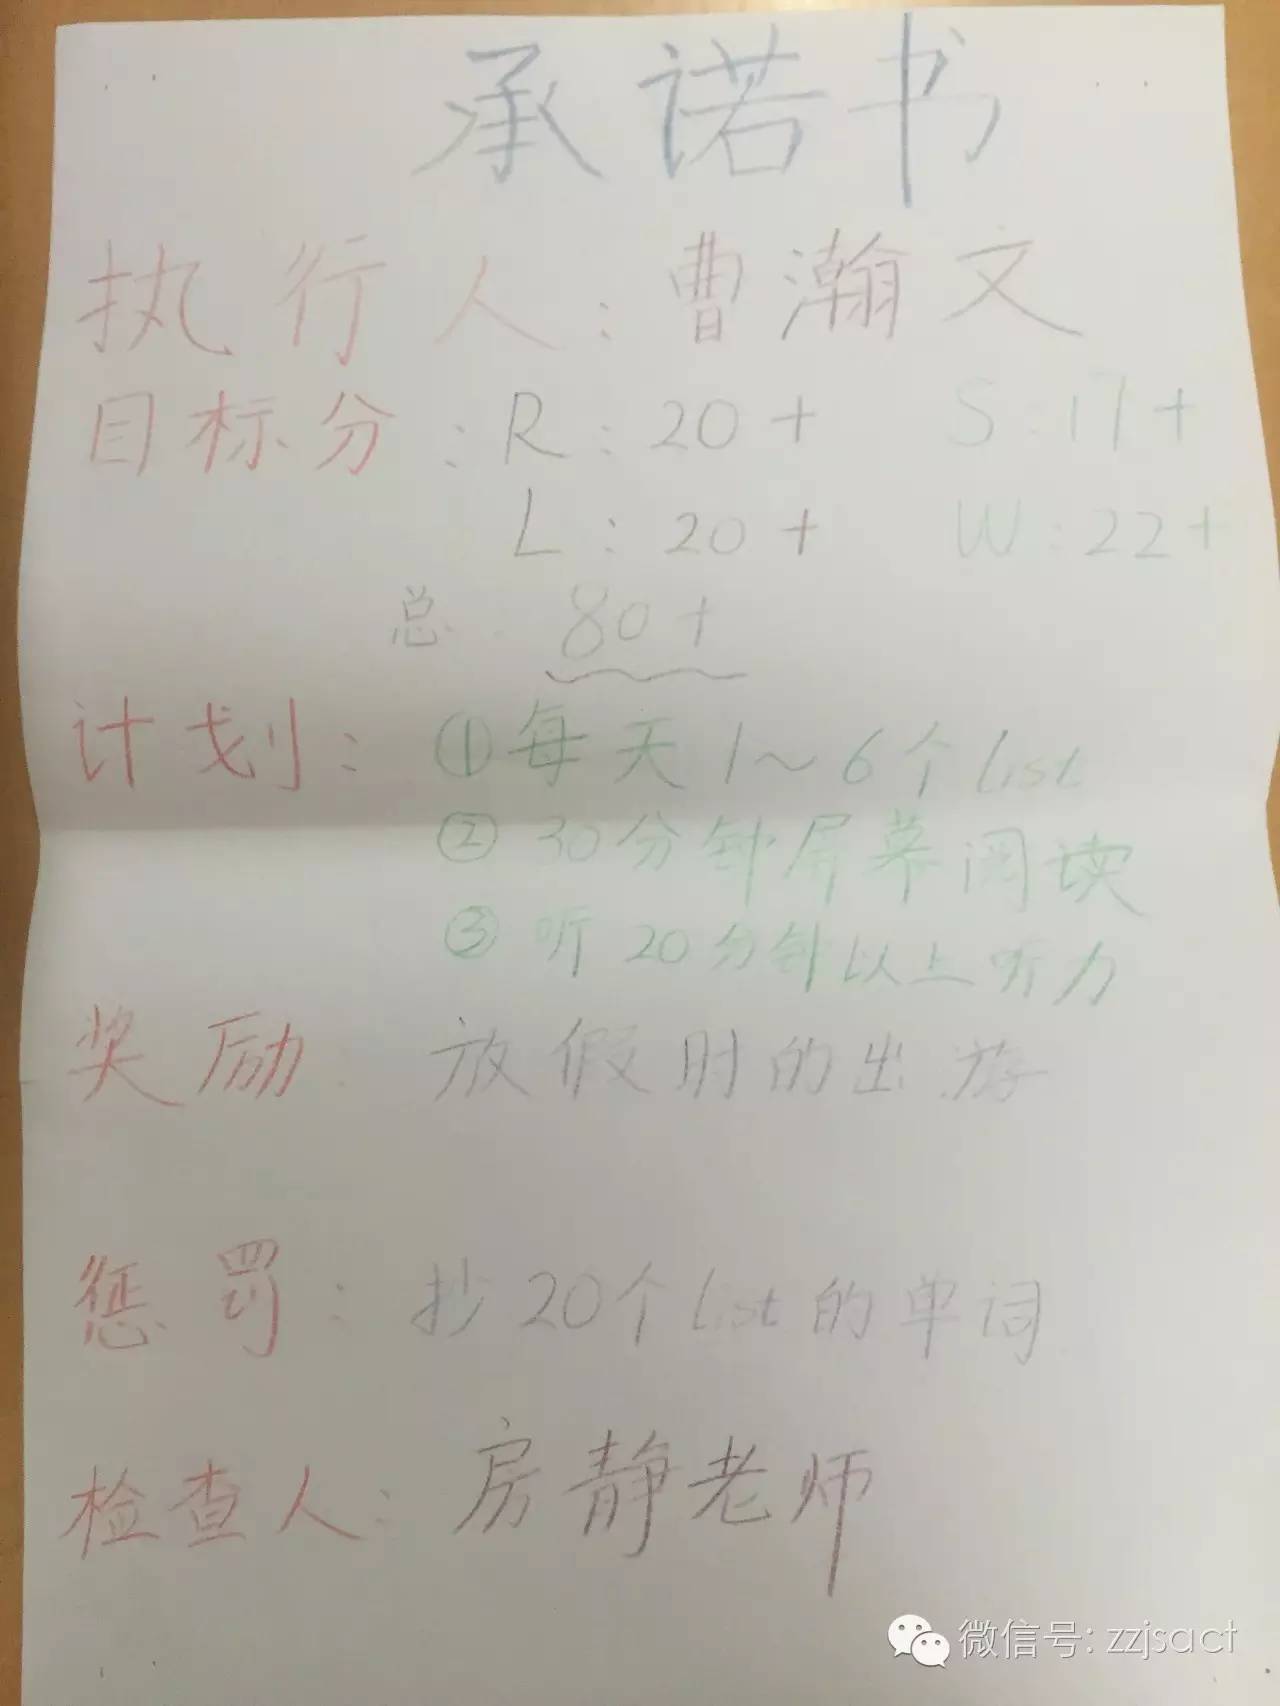 承诺书
执行人：曹瀚文
目标分：R：20+ S：17+
L：20+ W：22+
总：80+
计划：①每天1～6个list
②30分钟屏幕阅读
③听20分钟以上听力
奖励：放假时的出游
惩罚：抄20个list的单词
检查人：房静老师
微信号: zzjsact